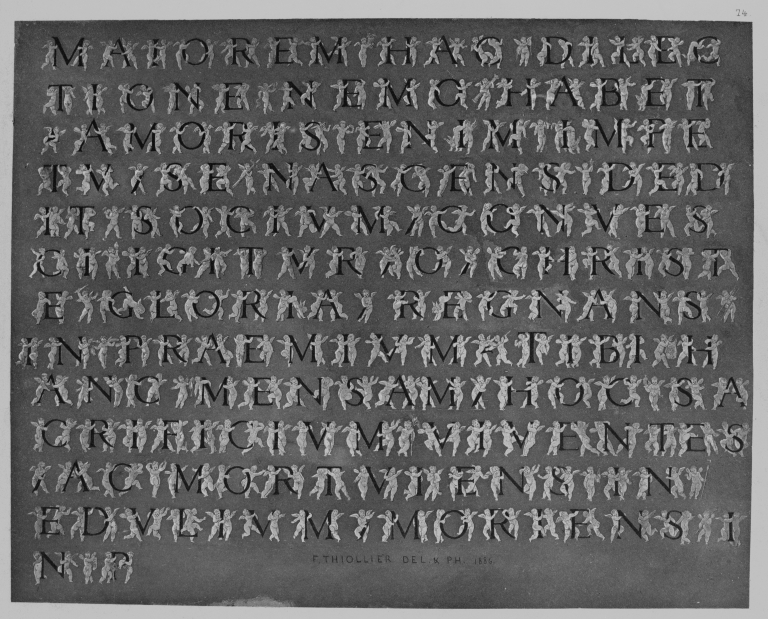 MAIOREM HAC DILEC
TIONE NEMO HABET
AMORIS ENIM IMPE
TV SE NASCENS DED
IT SOCIVM CONVES
CI IGITVR O CHRIST
E GLORIA REGNANS
IN PRAEMIVM TIBI H
ANC MENSAM HOC SA
CRIFICIVM VIVENTES
AC MORTVI ENS IN
EDVLIVM MORIENS I
N P
F. THIOLLIER DEL & PH.